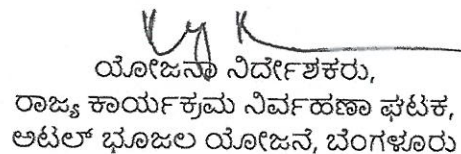 ಯೋಜನಾ ನಿರ್ದೇಶಕರು,
ರಾಜ್ಯ ಕಾರ್ಯಕ್ರಮ ನಿರ್ವಹಣಾ ಘಟಕ,
ಅಟಲ್ ಭೂಜಲ ಯೋಜನೆ, ಬೆಂಗಳೂರು